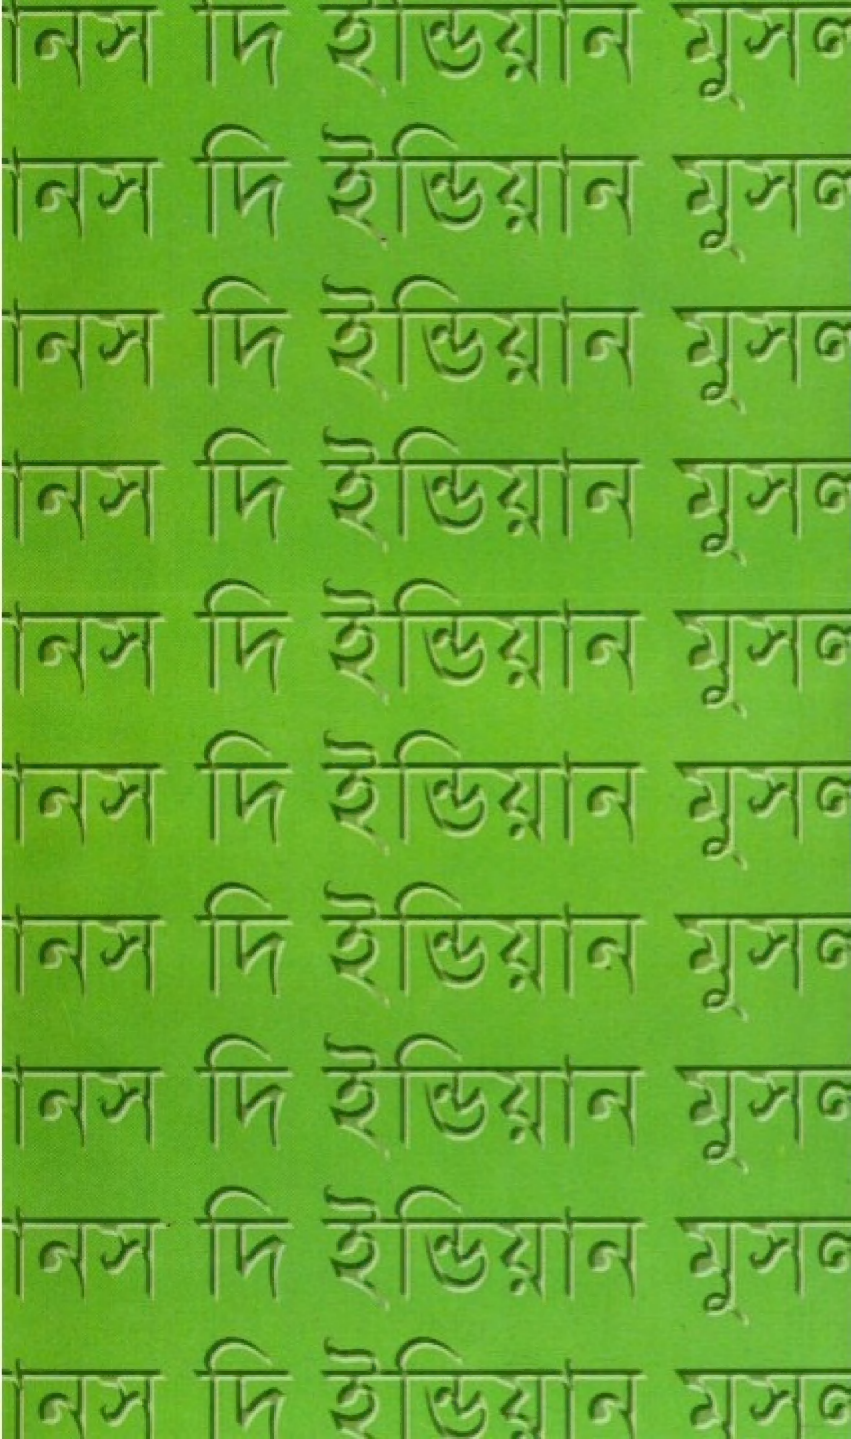 ানস দি ইন্ডিয়ান মুসল
ানস দি ইন্ডিয়ান মুসল
ানস দি ইন্ডিয়ান মুসল
ানস দি ইন্ডিয়ান মুসল
ানস দি ইন্ডিয়ান মুসল
ানস দি ইন্ডিয়ান মুসল
ানস দি ইন্ডিয়ান মুসল
ানস দি ইন্ডিয়ান মুসল
ানস দি ইন্ডিয়ান মুসল
ানস দি ইন্ডিয়ান মুসল